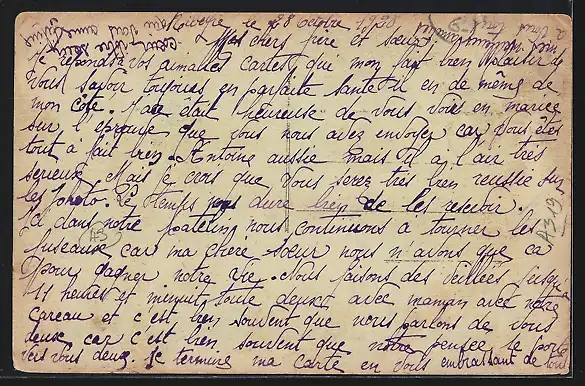 le 28 Octobre 1928
Mes chers frère et soeur
Je réponds à vos aimables cartes que mon fait bien plaisir de
vous savoir toujours en parfaite santé il en de même de
mon côté. J'ai était heureuse de vous voir en mariée
sur l'épreuve que vous nous avez envoyer car vous êtes
tout à fait bien. Antoine aussie mais il a l'air très
serieux. Mais je crois que vous serez très bien reussie sur
les photo. Le temps nous dure bien de les recevoir.
Ici dans notre patelin nous continuons a tourner les
fuseaux car ma chere soeur nous n'avons que ca
pour gagner notre vie. Nous faisons des veillées jusque
11 heures et minuit toute deux avec maman avec notre
careau et c'est bien souvent que nous parlons de vous
deux car c'est bien souvent que notre pensée se porte
vers vous deux. Je termine ma carte en vous embrassant de tous